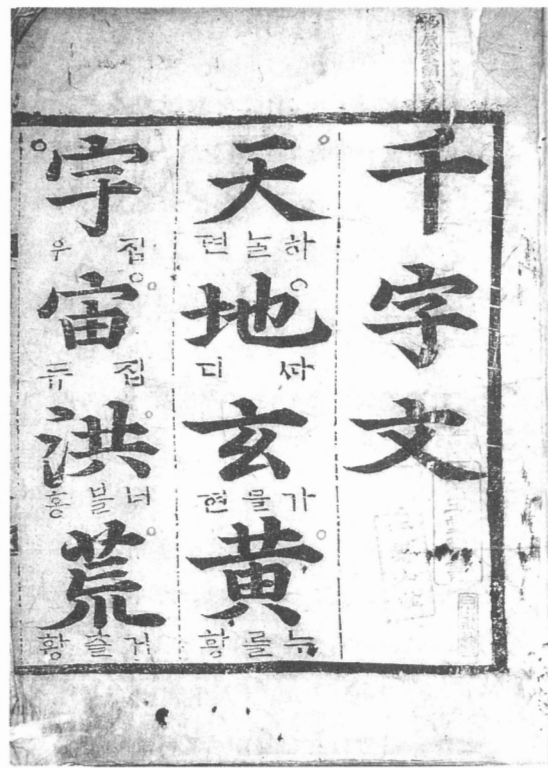 千字文
天 하늘 텬 地 ᄯᅡ 디 玄 가믈 현 黃 누를 황
宇 집 우 宙 집 듀 洪 너블 홍 荒 거츨 황